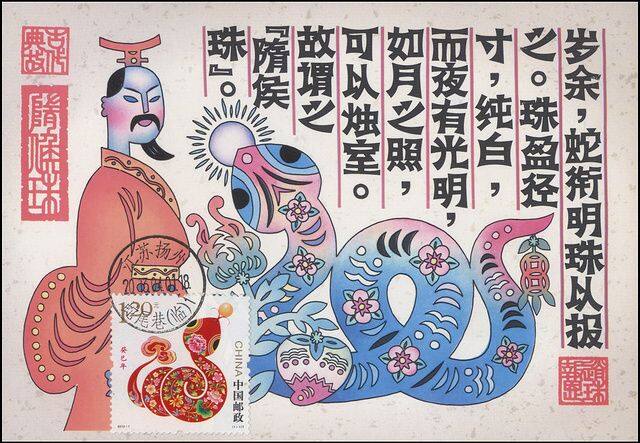 岁余，蛇衔明珠以报
之。珠盈径
寸，纯白，
而夜有光明，
如月之照，
可以烛室。
故谓之
『隋侯
珠』。
隋侯珠
江苏扬州
巷(临)
1.20元
癸巳年
CHINA
中国邮政